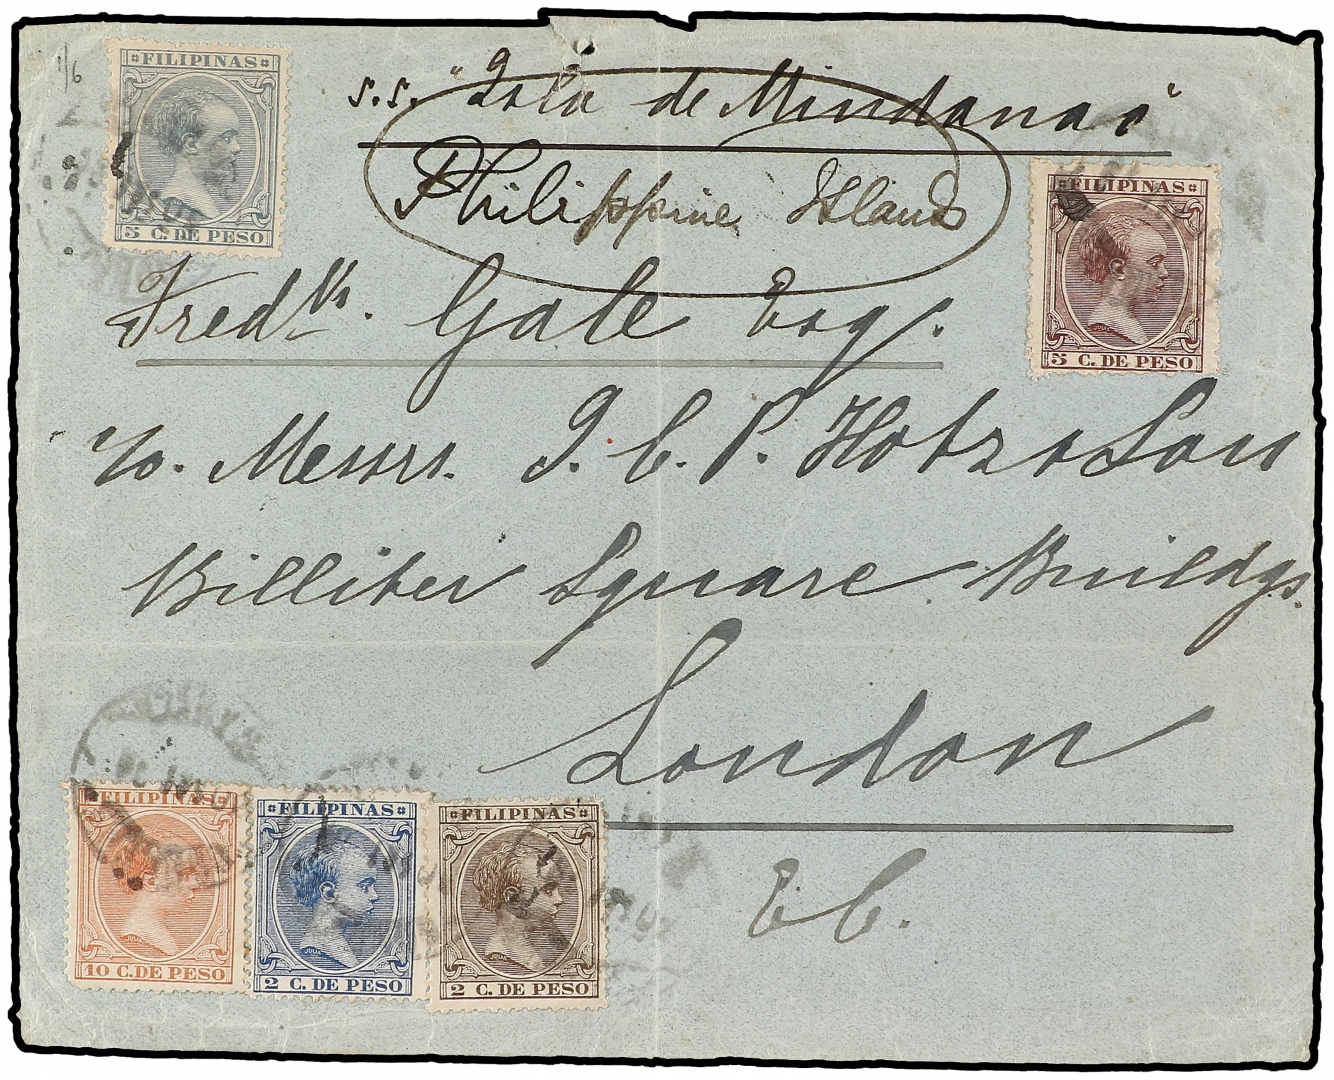 1/6
FILIPINAS
5 C. DE PESO
s.s. "Isla de Mindanao"
Philippine Islands
FILIPINAS
JULIA
5 C. DE PESO
Fredk. Gale Esq.
c/o. Messrs. J. C. P. Hotz & Son
Billiter Square Buildgs.
London
E C.
FILIPINAS
JULIA
10 C. DE PESO
FILIPINAS
JULIA
2 C. DE PESO
FILIPINAS
JULIA
2 C. DE PESO